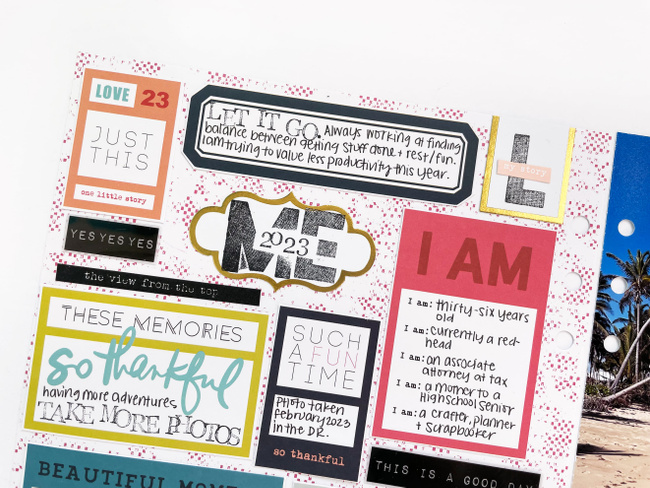 LOVE 23
JUST
THIS
one little story
LET IT GO. Always working at finding
balance between getting stuff done + rest/fun.
I am trying to value less productivity this year.
L
my story
YES YES YES
the view from the top
ME
2023
I AM
I am: thirty-six years
old
I am: currently a red-
head
I am: an associate
attorney at tax
I am: a mother to a
Highschool senior
I am: a crafter, planner
+ scrapbooker
THESE MEMORIES
so thankful
having more adventures,
TAKE MORE PHOTOS
SUCH
A FUN
TIME
Photo taken
february 2023
in the DR.
so thankful
BEAUTIFUL
THIS IS A GOOD DAY